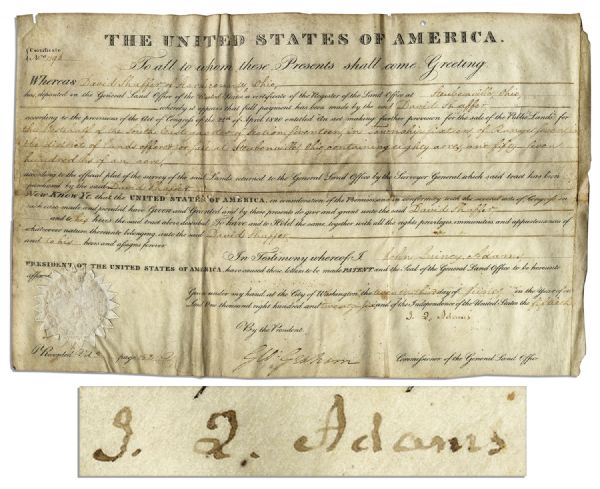 Certificate
No.
THE UNITED STATES OF AMERICA.
To all to whom these Presents shall come Greeting.
Whereas David Shaffer of Harrison County, Ohio,
has deposited in the General Land Office of the United States a certificate of the Register of the Land Office at Steubenville, Ohio,
whereby it appears that full payment has been made by the said David Shaffer
according to the provisions of the Act of Congress of the 24th of April 1820 entitled An act making further provision for the sale of the Public Lands for
the of the South East quarter of Section in Township of Range
the district of Lands offered for sale at Steubenville, Ohio, containing eighty acres, and fifty seven
hundredths of an acre,
according to the official plat of the survey of the said Lands returned to the General Land Office by the Surveyor General, which said tract has been
purchased by the said David Shaffer
Now Know Ye that the UNITED STATES OF AMERICA, in consideration of the Premises and in conformity with the several acts of Congress in
such case made and provided have Given and Granted and by these presents do give and grant unto the said David Shaffer
and to his heirs the said tract above described: To have and to Hold the same together with all the rights privileges immunities and appurtenances of
whatsoever nature thereunto belonging unto the said David Shaffer
and to his heirs and assigns forever
In Testimony whereof I John Quincy Adams
PRESIDENT OF THE UNITED STATES OF AMERICA, have caused these letters to be made PATENT and the Seal of the General Land Office to be hereunto
affixed
Given under my hand, at the City of Washington, the day of in the Year of our
Lord One thousand eight hundred and twenty and of the Independence of the United States the fiftieth
J. Q. Adams
By the President
Geo Graham
Commissioner of the General Land Office
Recorded Vol page
J. Q. Adams